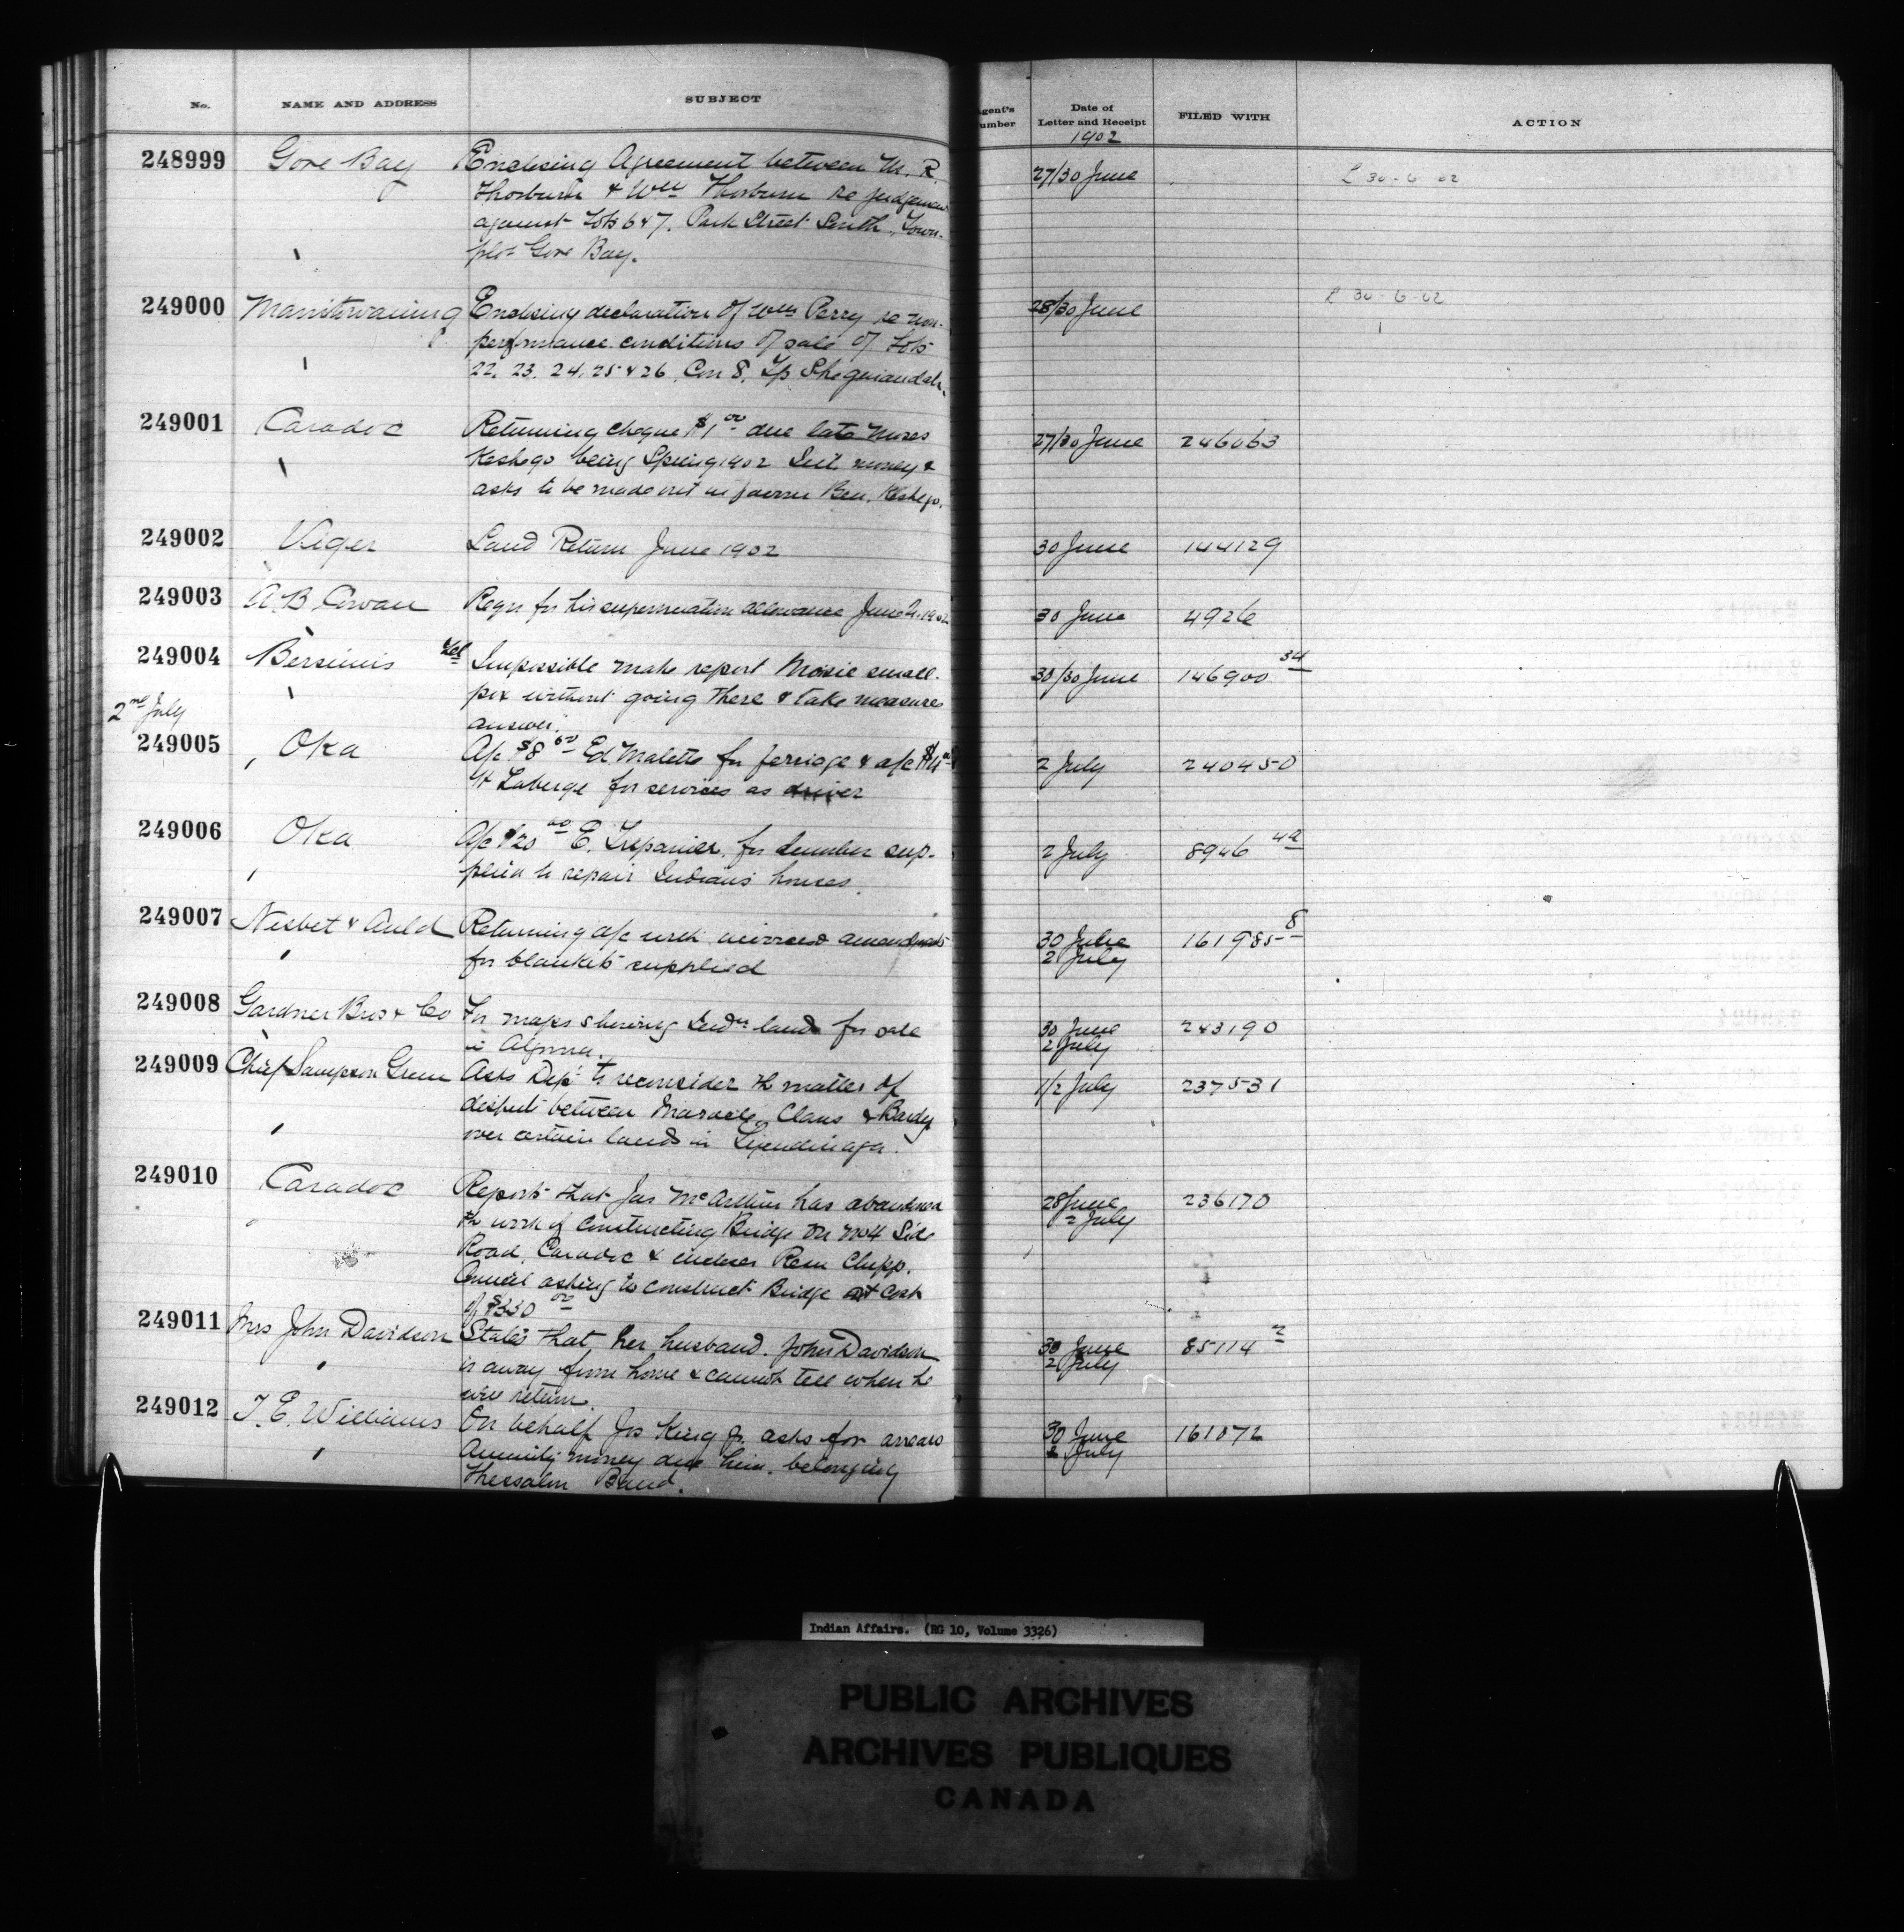 No. NAME AND ADDRESS SUBJECT
Agent's Number Date of Letter and Receipt FILED WITH ACTION
1902
248999 Gore Bay Enclosing Agreement between M. R.
Thorburn & Wm Thorburn re judgement
against Lots 6 & 7. Park Street South, Town-
plot Gore Bay.
27/30 June L 30-6-02
249000 Manitowaning Enclosing declaration of Wm Perry re non-
performance conditions of sale of Lots
22. 23. 24. 25 & 26. Con 8. Tp Sheguiandah.
28/30 June L 30-6-02
249001 Caradoc Returning cheque $1 00 due late Moses
Keshego being Spring 1902 Int. money &
asks to be made out in favour Ben. Keshego.
27/30 June 246063
249002 Viger Land Return June 1902
30 June 144129
249003 A. B. Cowan Reqn for his superannuation allowance June 1902
30 June 4926
249004 Bersimis Tel Impossible make report Moisie small-
pox without going there & take measures
answer.
30/30 June 146900 34
2nd July
249005 Oka A/c $8 00 Ed Malette for ferriage & a/c $4 00
H Laberge for services as driver
2 July 240450
249006 Oka A/c $20 00 E. Trepanier. for lumber sup-
plied to repair Indians houses.
2 July 8946 4a
249007 Nisbet & Auld Returning a/c with amendments
for blankets supplied
30 June
2 July 161985 8
249008 Gardner Bros & Co For maps showing Indn land for sale
in Algoma.
30 June
2 July 243190
249009 Chief Sampson Green Asks Dept to reconsider the matter of
dispute between Maracle, Claus & Bardy
over certain lands in Tyendinaga.
1/2 July 237531
249010 Caradoc Reports that Jas McArthur has abandoned
the work of constructing Bridge on No 4 Side
Road, Caradoc & encloses Resn Chipp.
Council asking to construct Bridge at cost
of $330 00
28 June
2 July 236170
249011 Mrs John Davidson States that her husband. John Davidson
is away from home & cannot tell when he
will return.
30 June
2 July 85114 2
249012 T. E. Williams On behalf Jos King Jr. asks for arrears
annuity money due him. belonging
Thessalon Band.
30 June
2 July 161072
Indian Affairs. (RG 10, Volume 3326)
PUBLIC ARCHIVES
ARCHIVES PUBLIQUES
CANADA